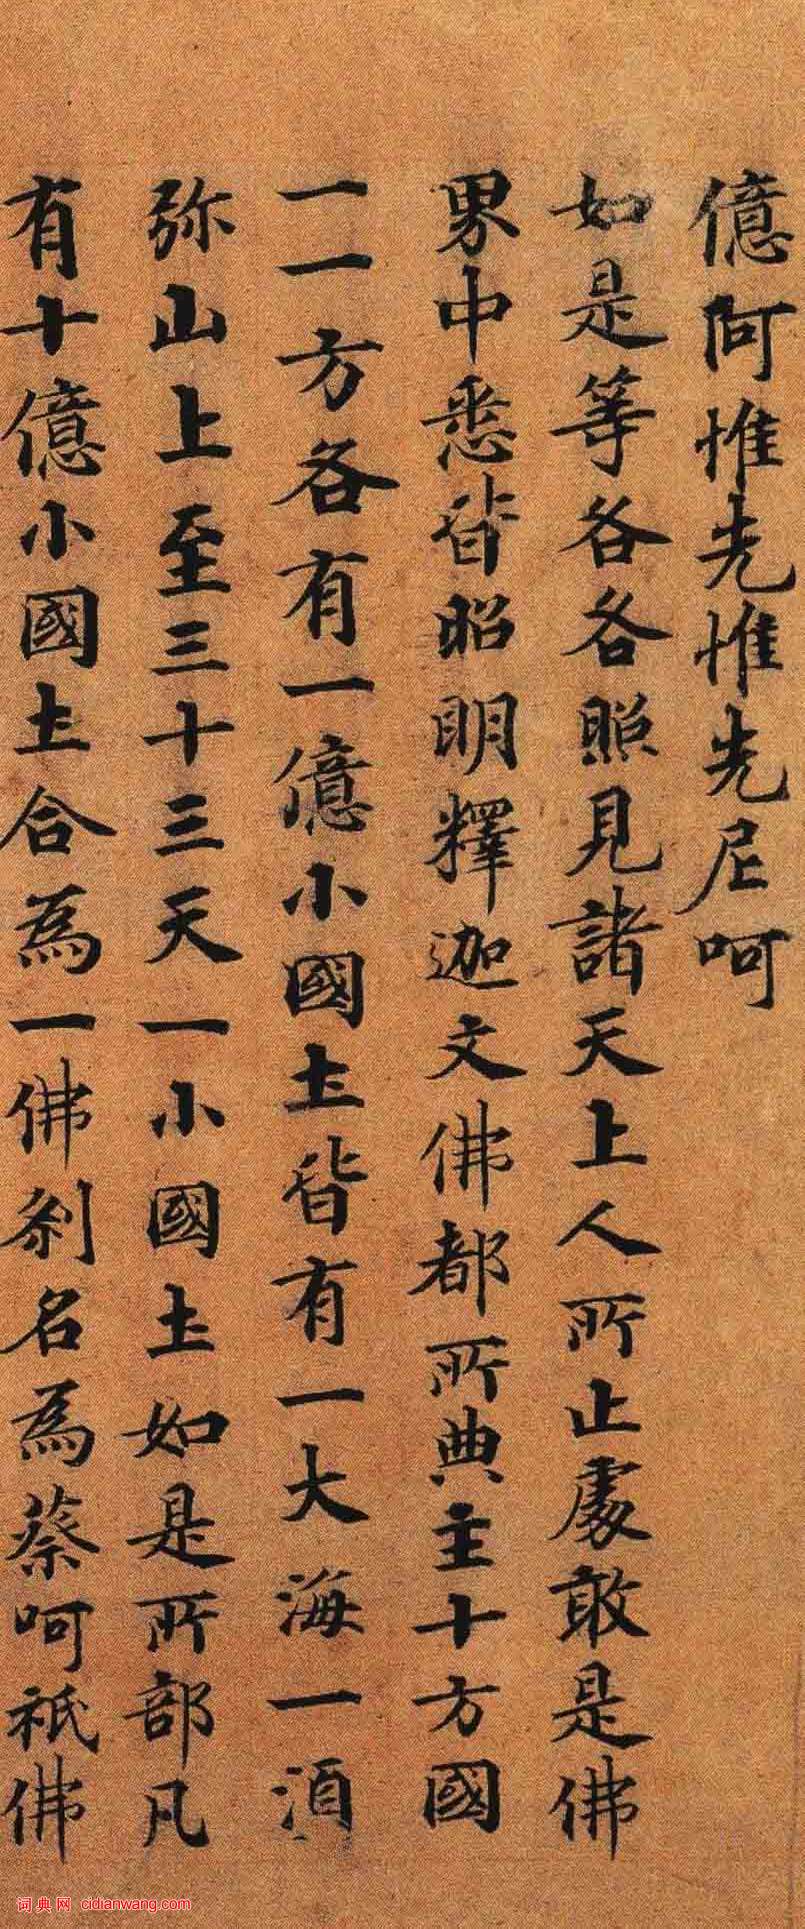 億阿惟先惟先尼呵
如是等各各照見諸天上人所止處敢是佛
界中悉皆昭明釋迦文佛都所典主十方國
一一方各有一億小國土皆有一大海一須
弥山上至三十三天一小國土如是所部凡
有十億小國土合為一佛刹名為蔡呵祇佛
词典网 cidianwang.com